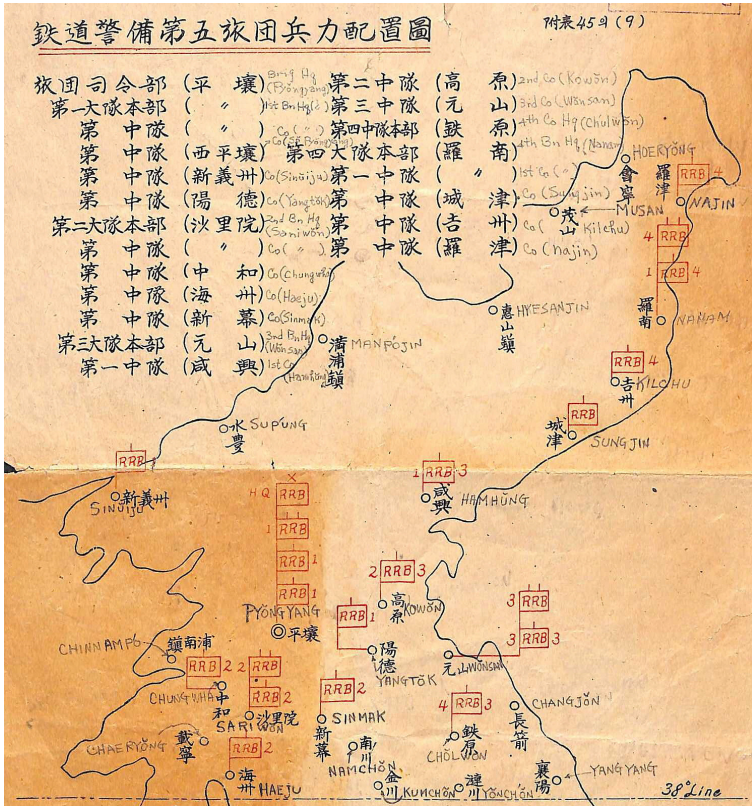 鉄道警備第五旅団兵力配置圖
附表45의(9)
旅団司令部(平壤) Brig Hq (Pyŏngyang)
第一大隊本部(〃) 1st Bn Hq
第 中隊(〃) Co (〃)
第 中隊(西平壤) Co
第 中隊(新義州) Co (Sinŭiju)
第 中隊(陽德) Co (Yangtŏk)
第二大隊本部(沙里院) 2nd Bn Hq (Sariwŏn)
第 中隊(〃) Co (〃)
第 中隊(中和) Co (Chungwha)
第 中隊(海州) Co (Haeju)
第 中隊(新幕) Co (Sinmak)
第三大隊本部(元山) 3rd Bn Hq (Wŏnsan)
第一中隊(咸興) 1st Co (Hamhŭng)
第二中隊(高原) 2nd Co (Kowŏn)
第三中隊(元山) 3rd Co (Wŏnsan)
第四中隊本部(鉄原) 4th Co Hq (Chŭlwŏn)
第四大隊本部(羅南) 4th Bn Hq (Nanam)
第一中隊(〃) 1st Co (〃)
第 中隊(城津) Co (Sungjin)
第 中隊(吉州) Co ( Kilchu)
第 中隊(羅津) Co (Najin)
HOERYŎNG
會寧
羅津
RRB 4
NAJIN
茂山
MUSAN
4 RRB
1 RRB 4
羅南
NANAM
惠山鎮
HYESANJIN
満浦鎮
MANPOJIN
RRB 4
吉州
KILCHU
水豊
SUPUNG
RRB
城津
SUNGJIN
RRB
新義州
SINŬIJU
HQ RRB
1 RRB
RRB 1
RRB 1
PYŎNGYANG
平壤
1 RRB 3
咸興
HAMHŬNG
2 RRB 3
高原
KOWŎN
RRB 1
陽德
YANGTŎK
3 RRB
3 RRB 3
元山
WŎNSAN
CHINNAMPO
鎮南浦
RRB 2
CHUNGWHA
中和
2 RRB
RRB 2
沙里院
SARIWŎN
RRB 2
SINMAK
新幕
4 RRB 3
鉄原
CHŎLWŎN
CHANGJŎN
長箭
CHAERYŎNG
載寧
RRB 2
海州
HAEJU
南川
NAMCHŎN
金川
KUMCHŎN
漣川
YŎNCHŎN
襄陽
YANGYANG
38° Line